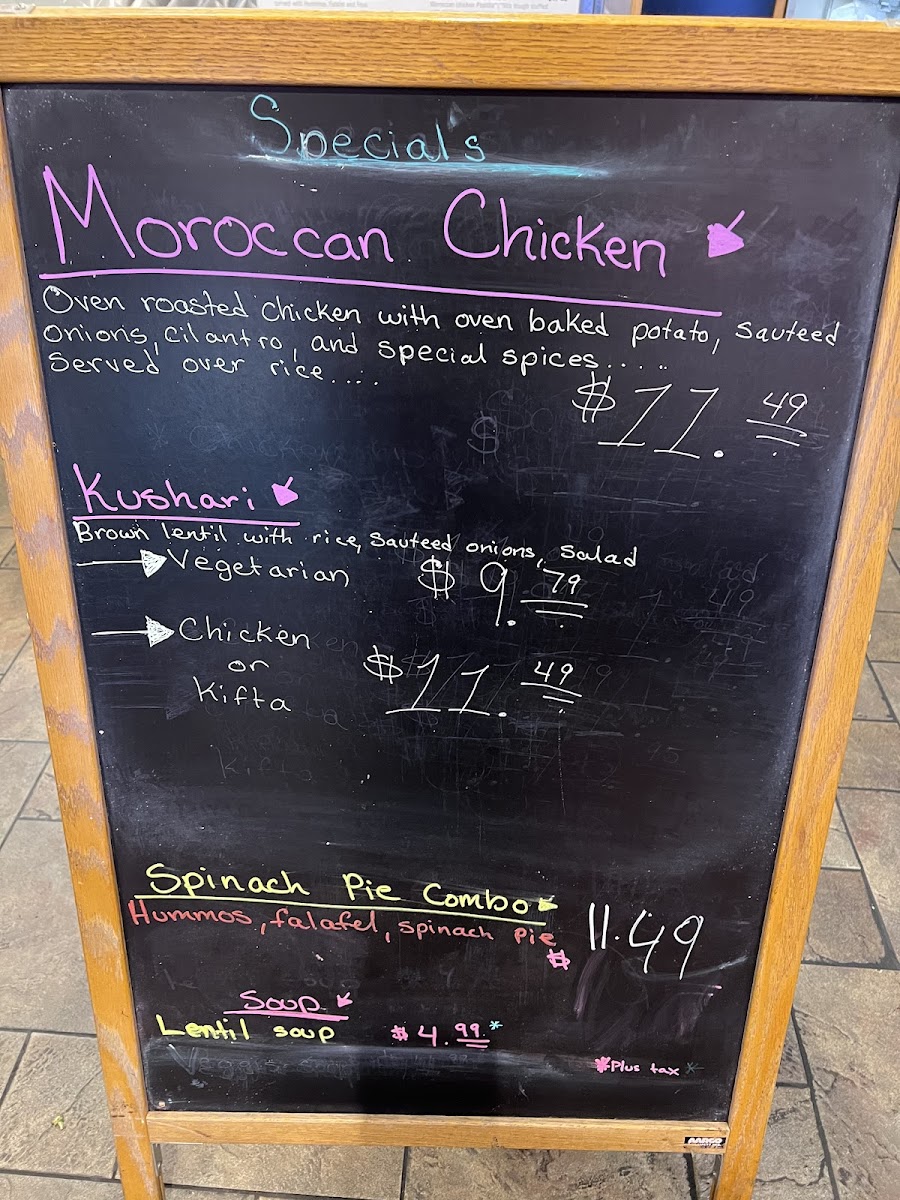 Specials
Moroccan Chicken
Oven roasted chicken with oven baked potato, sauteed
onions, cilantro, and special spices.....
Served over rice....
$11.49
Kushari
Brown lentil with rice, sauteed onions, salad
Vegetarian $9.79
Chicken
or
Kifta
$11.49
Spinach Pie Combo
Hummos, falafel, spinach pie
$11.49
Soup
Lentil soup $4.99*
*Plus tax*
AARCO